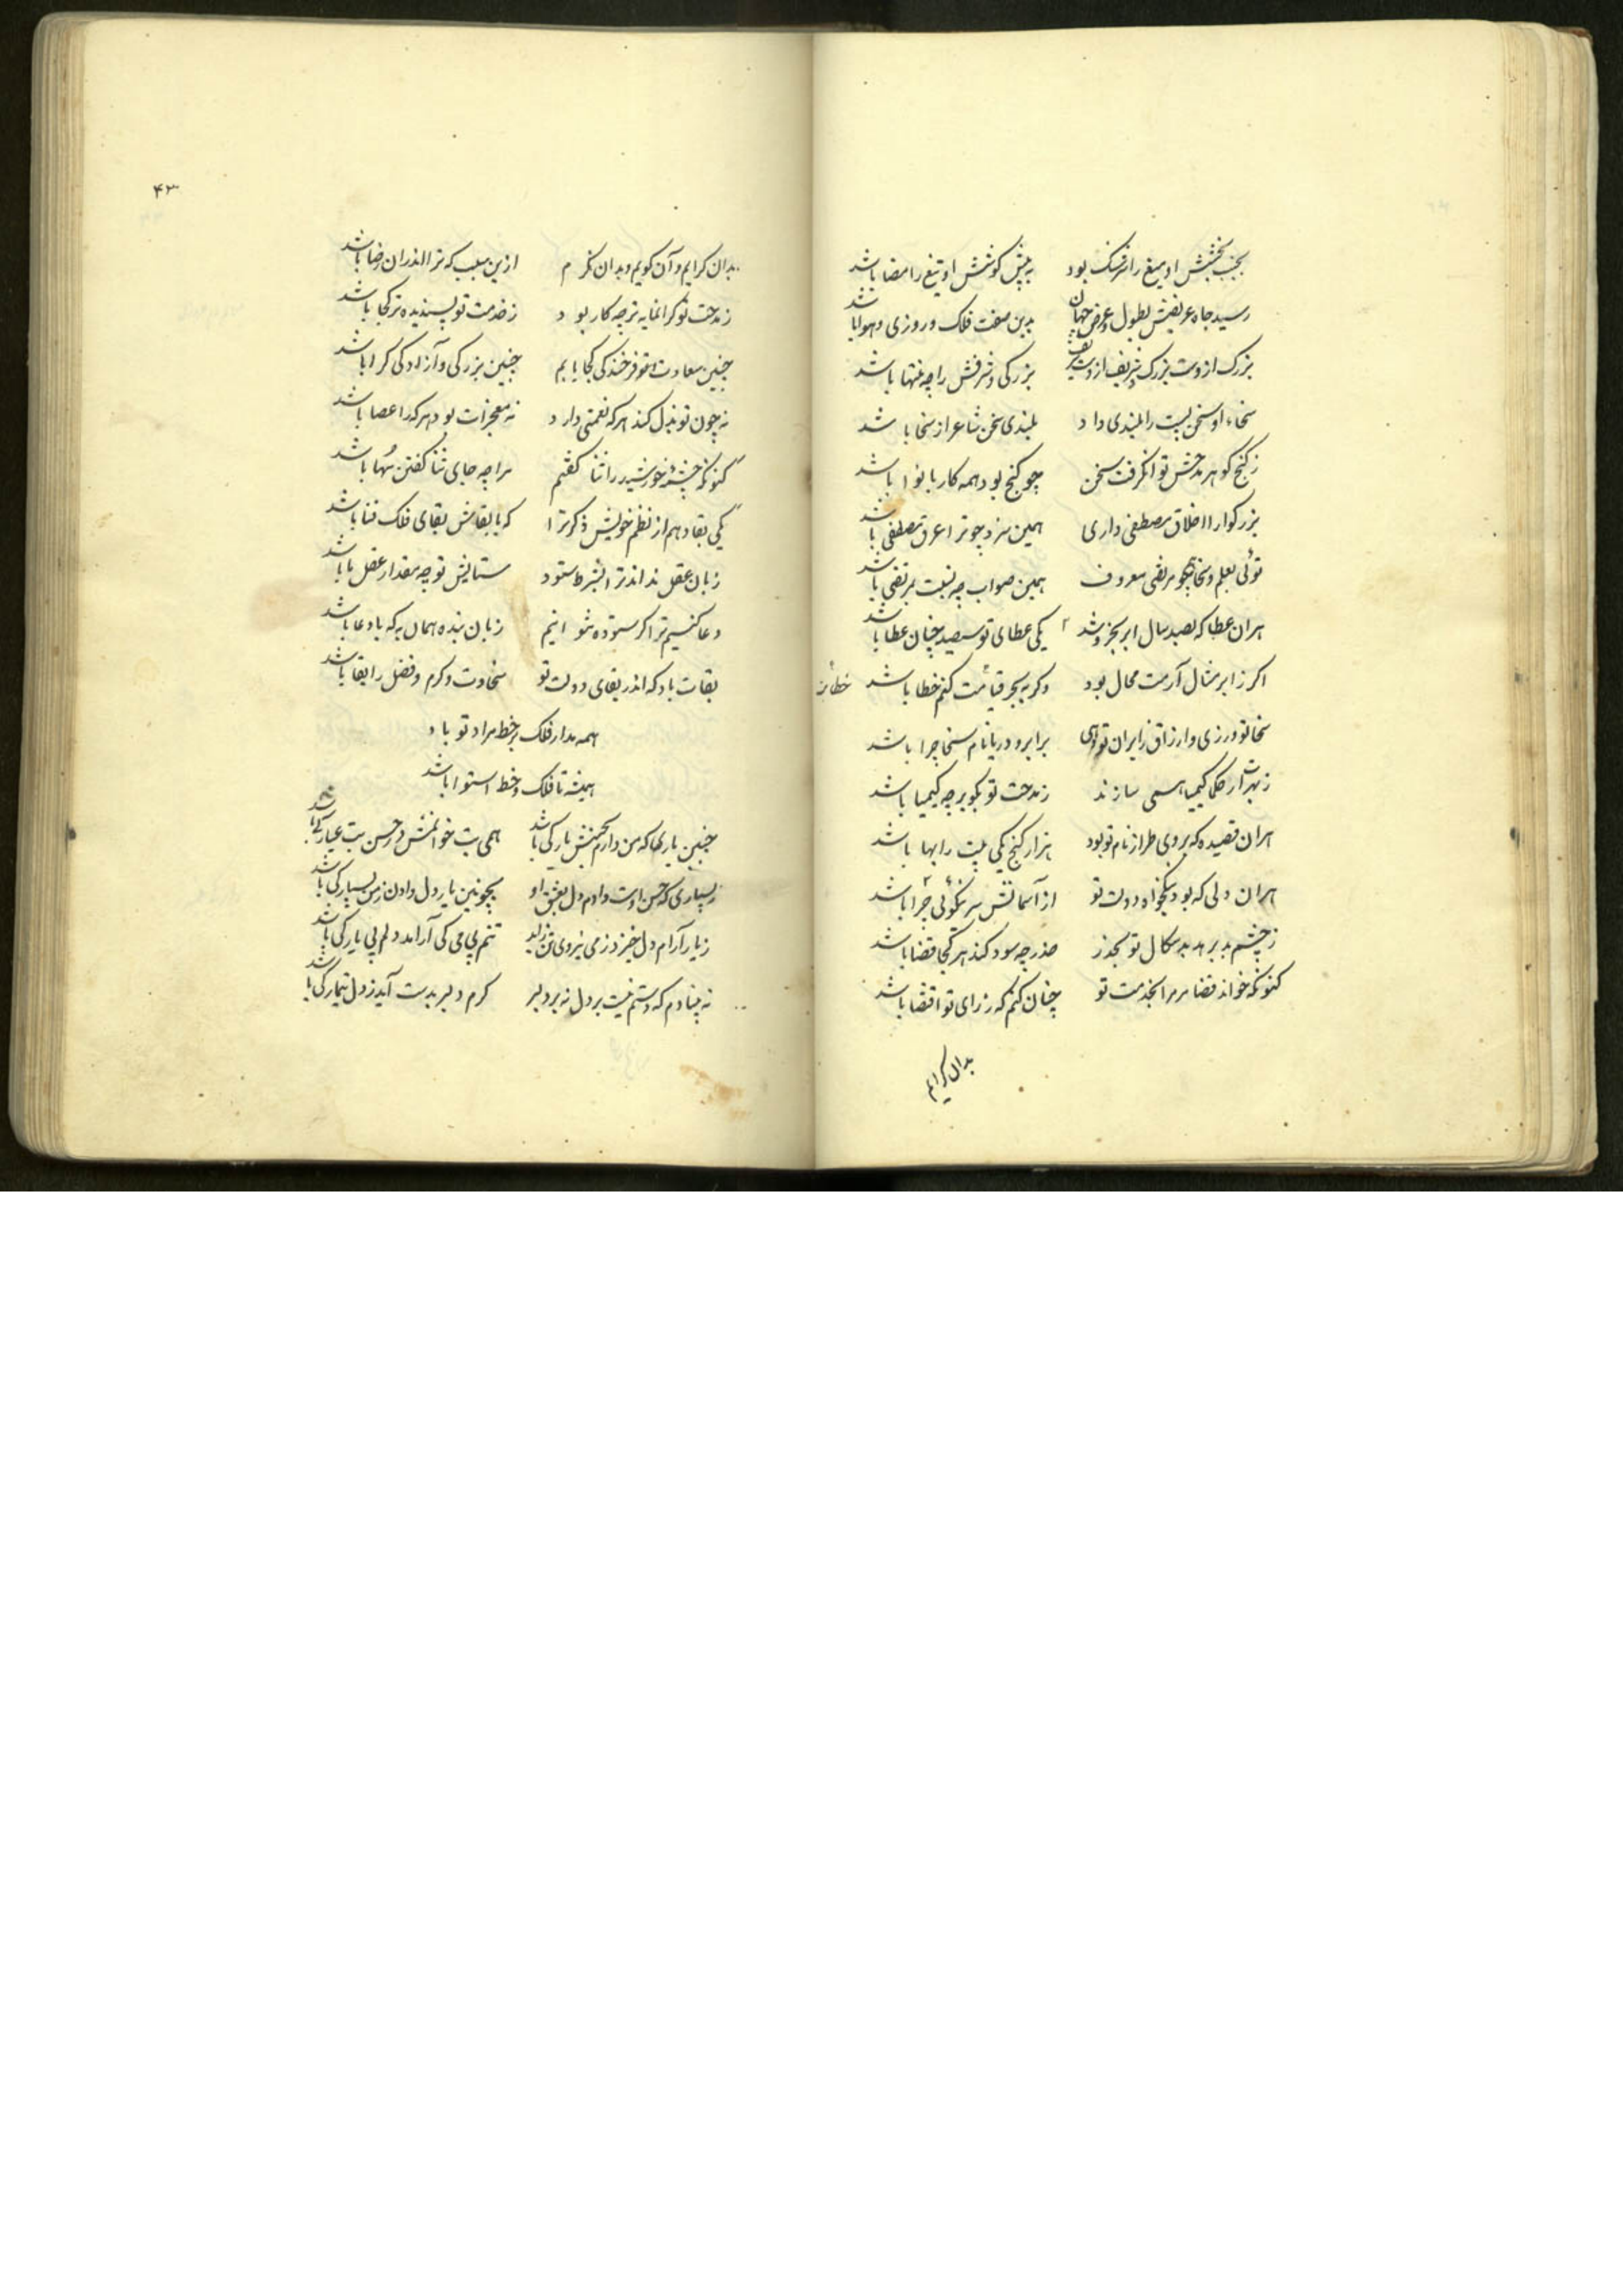 بجنب بخشش او میغ را سرشک بود به پیش کوشش او تیغ را مضا باشد
رسید جاه عریضش بطول و عرض جهان بدین صفت فلک و روزی و هوا باشد
بزرک ازوست بزرک و شریف ازوست شریف بزرکی و شرفش را چه منتها باشد
سخاء او سخن پست را بلندی داد بلندی سخن شاعر از سخا باشد
ز کنج کوهر مدحش توانکرفت سخن چو کنج بود همه کار با نوا باشد
بزرکوارا اخلاق مصطفی داری همین سزد چو ترا عرق مصطفی باشد
توئی بعلم و سخا همچو مرتضی معروف همین صواب چه نسبت بمرتضی باشد
هران عطا که بصد سال ابر و بحر دهد یکی عطای تو سیصد چنان عطا باشد
اکر ز ابر مثال آرمت محال بود وکر به بحر قیاست کنم خطا باشد
سخا تو ورزی و ارزاق زایران تو دهی برابر و دریا نام سخا چرا باشد
حکما کیمیا همی سازند ز مدحت تو نکوتر چه کیمیا باشد
هران قصیده که بر وی طراز نام تو بود هزار کنج یکی بیت را بها باشد
هران دلی که بود نیکخواه دولت تو از آسمانش بر نیکوئی جزا باشد
ز چشم بد برهد بدسکال تو بحذر حذر چه سود کند هر کجا قضا باشد
کنونکه خواند قضا مر مرا بخدمت تو چنان کنم که ز رای تو اقتضا باشد
بدان کرایم
۴۳
بدان کرایم و آن کویم و بدان نکرم ازین سبب که ترا اندران رضا باشد
ز مدحت تو کرانمایه تر چه کار بود ز خدمت تو پسندیده تر کجا باشد
چنین سعادت و فرخندکی کجا یابم چنین بزرکی و آزادکی کرا باشد
نه چون تو بذل کند هر که نعمتی دارد نه معجزات بود هر که را عصا باشد
کنونکه چشمهٔ خورشید را ثنا کفتم مرا چه جای ثنا کفتن سها باشد
یکی بقا دهم از نظم خویش ذکر ترا که با بقاش بقای فلک فنا باشد
زبان عقل نداند ترا بشرط ستود ستایش تو چه مقدار عقل ما باشد
دعا کنیم ترا کر ستوده نتوانیم زبان بنده همان به که با دعا باشد
بقات باد که اندر بقای دولت تو سخاوت و کرم و فضل را بقا باشد
همه مدار فلک بر خط مراد تو باد
همیشه تا فلک و خط استوا باشد
چنین یاری که من دارم بحسنش یار کی باشد همی بت خوانمش در حسن بت عیار کی باشد
بسیاری که حسن اوست دادم دل بعشق او بچونین یار دل دادن ز من بسیار کی باشد
ز یار آرام دل خیزد ز می نیروی تن زاید تنم بی می کی آرامد دلم بی یار کی باشد
نه پندارم که دستم نیست بر دل نه بر دلبر کرم دلبر بدست آید ز دل تیمار کی باشد